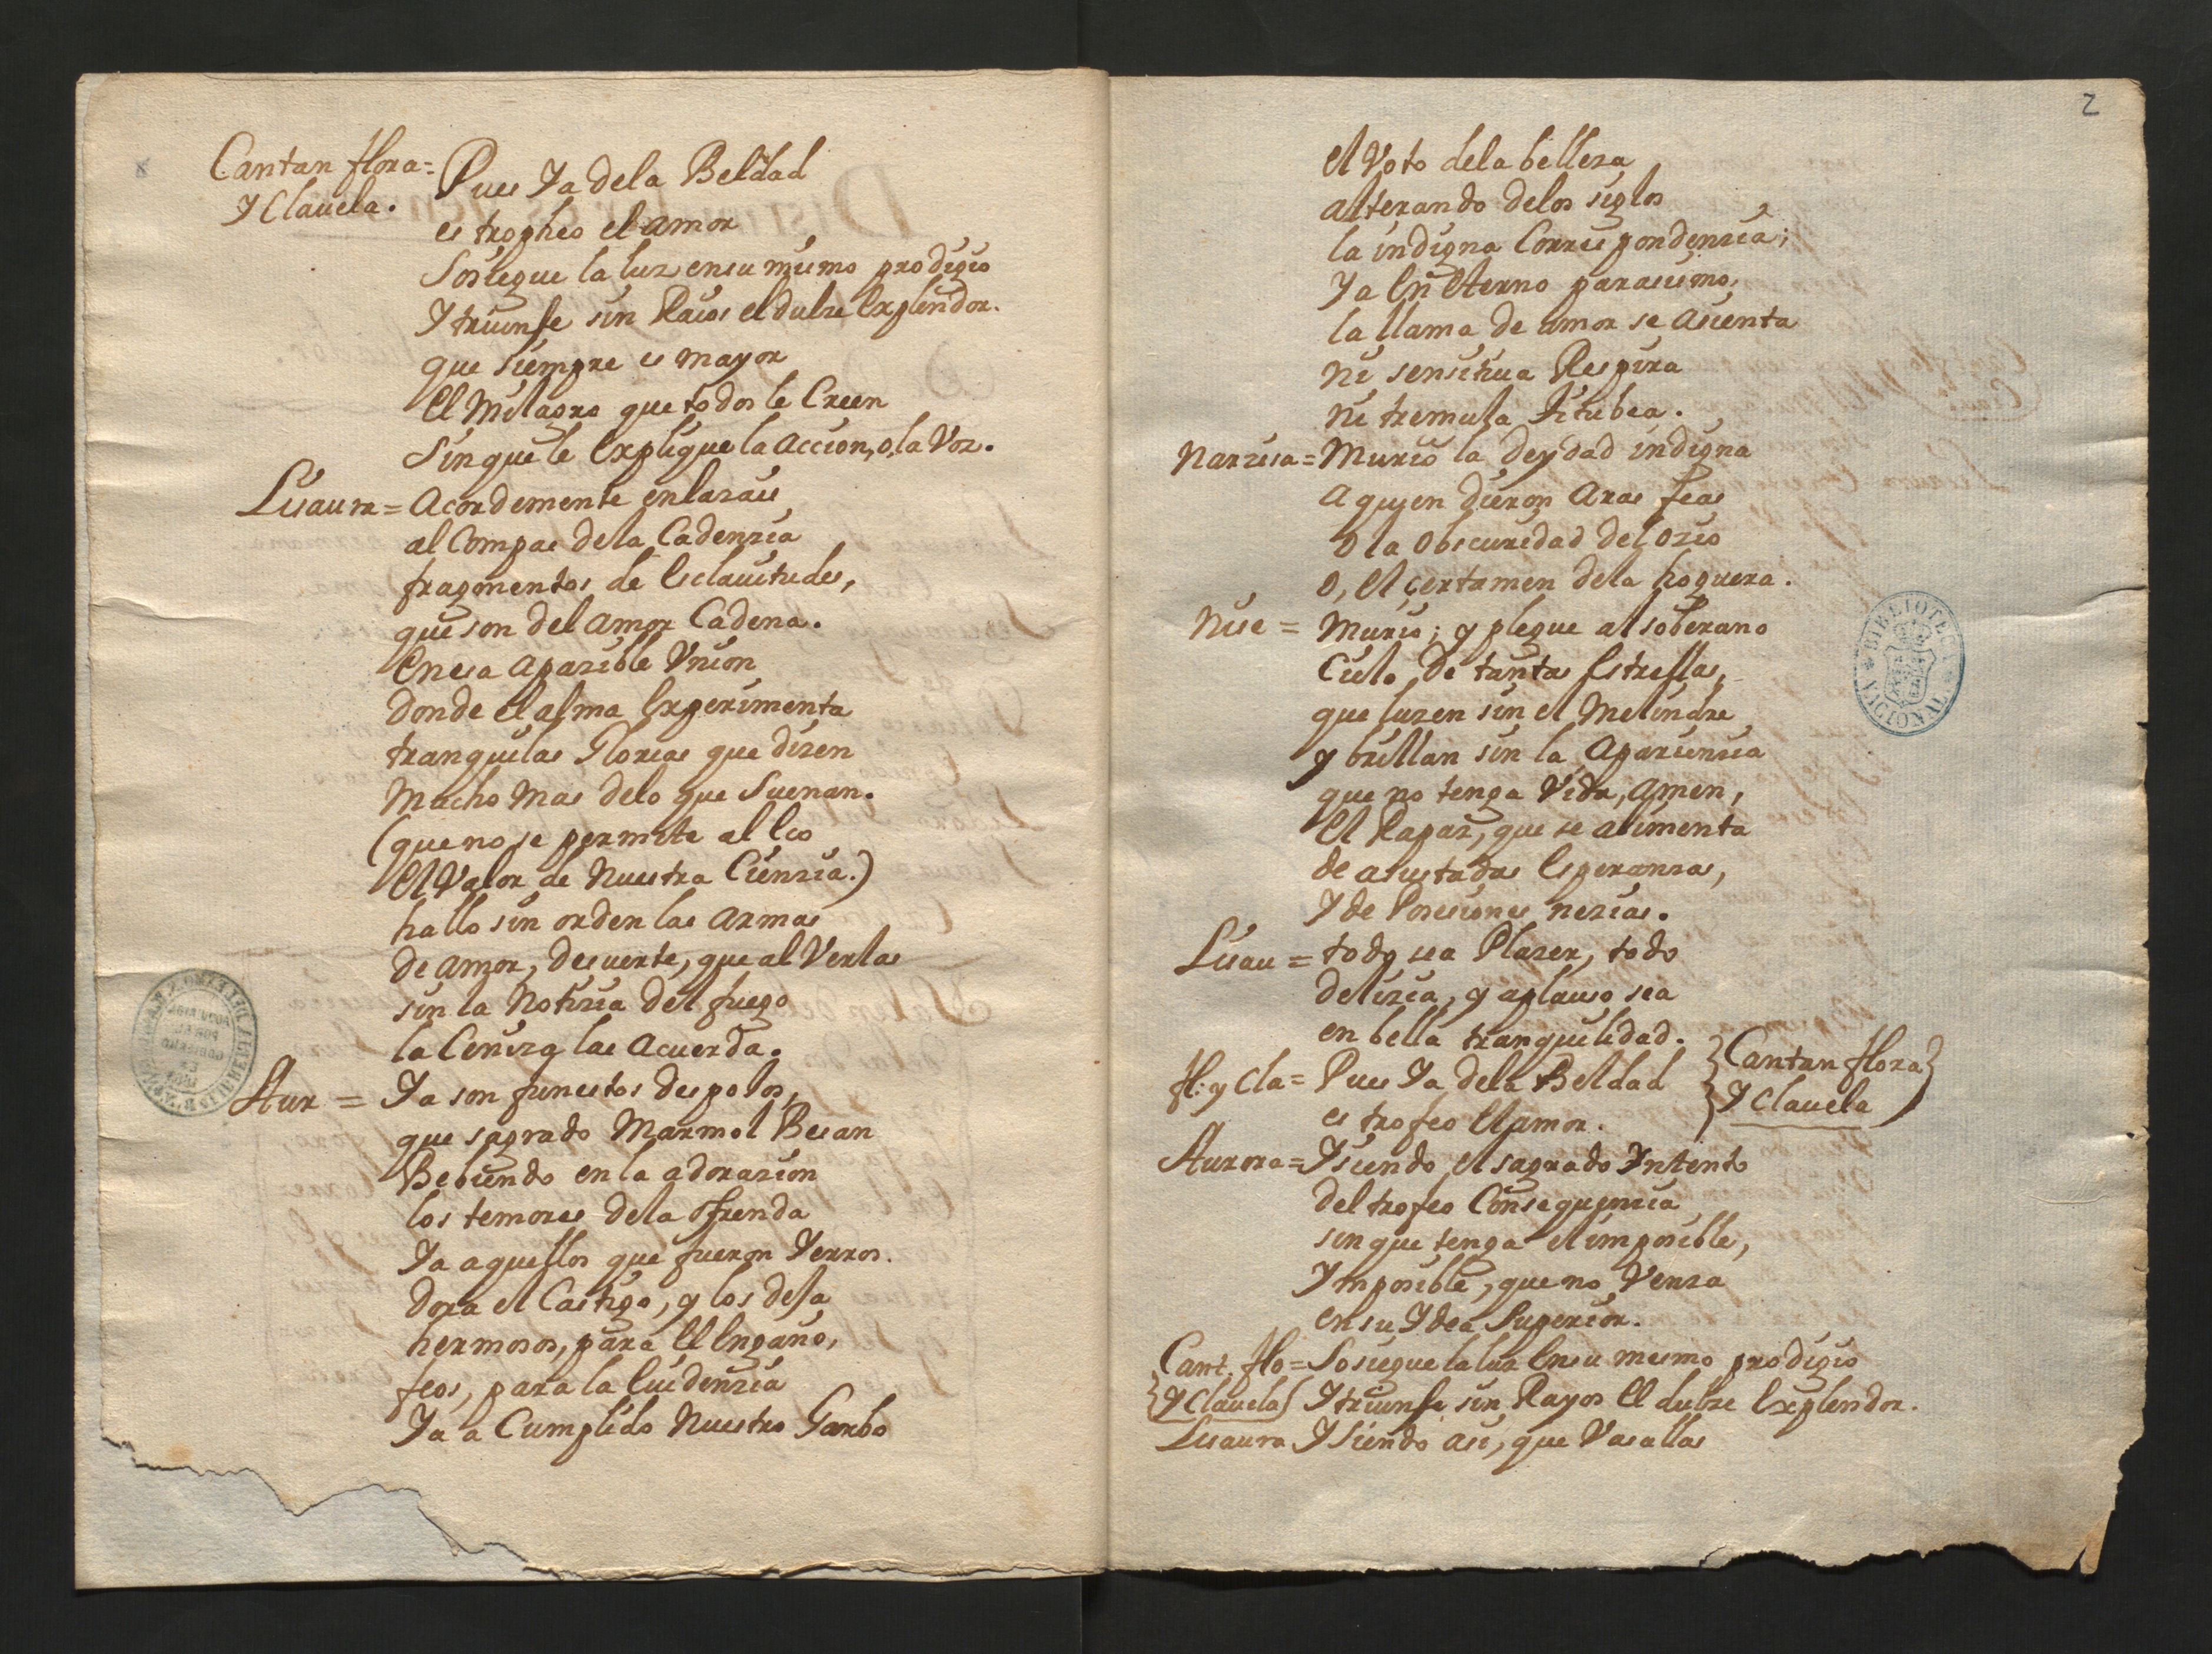 Cantan flora=
Y Clauela.
Pues Ya dela Beldad
es tropheo el amor
Sosiegue la luz ensu mismo prodigio
Y triunfe sin Raios el dulze Explendor.
que siempre es mayor
El Milagro que todos le Creen
Sinque le Explique la accion, o, la Voz.
Lisaura= Acordemente enlazais
al Compas dela Cadenzia
fragmentos de Esclauitudes,
que son del amor Cadena.
Enesa apazible Vnion
donde el alma Experimenta
tranquilas Glorias que dizen
Mucho mas delo que Suenan.
(que no se permite al Eco
El Valor de Nuestra Cienzia.)
hallo sin orden las armas
de amor, desuerte, que al Verlas
sin la Notizia del fuego
la Ceniza las acuerda.
Aur = Ya son funestos despojos,
que sagrado Marmol Besan
Bebiendo en la adorazion
los temores dela ofrenda
Ya aquellos que fueron Yerros.
dora el Castigo, y los deja
hermosos, para El Engaño,
feos, para la Euidenzia
Ya a Cumplido Nuestro Garbo
2
el Voto dela belleza
alterando delos siglos
la indigna Correspondenzia;
Ya En Eterno parasismo,
la llama de amor se asienta
ni sensitiua Respira
ni tremula titubea.
Narzisa= Murio la deydad indigna
a quien dieron aras feas
o la obscuridad del ozio
o, El certamen dela hoguera.
Nise = Murio; y plegue al soberano
Cielo de tantas Estrellas,
que luzen sin el Melindre
y brillan sin la aparienzia
que no tenga Vida, amen,
El Rapaz, que se alimenta
de asustadas Esperanzas,
Y de Posesiones nezias.
Lisau = todo sea Plazer, todo
delizia, y aplauso sea
en bella tranquilidad.
Cantan flora
Y Clauela
fl: y Cla= Pues Ya dela Beldad
es trofeo El amor.
Aurora= Y siendo, el sagrado Yntento
del trofeo Consequenzia
sin que tenga el imposible,
Ymposible, que no Venza
en su Ydea Superior.
Cant. flo= Sosiegue la luz Ensu mesmo prodigio
Y Clauela Y triunfe sin Rayos El dulze Explendor.
Lisaura Y Siendo asi, que Vasallas
BIBLIOTECA NACIONAL